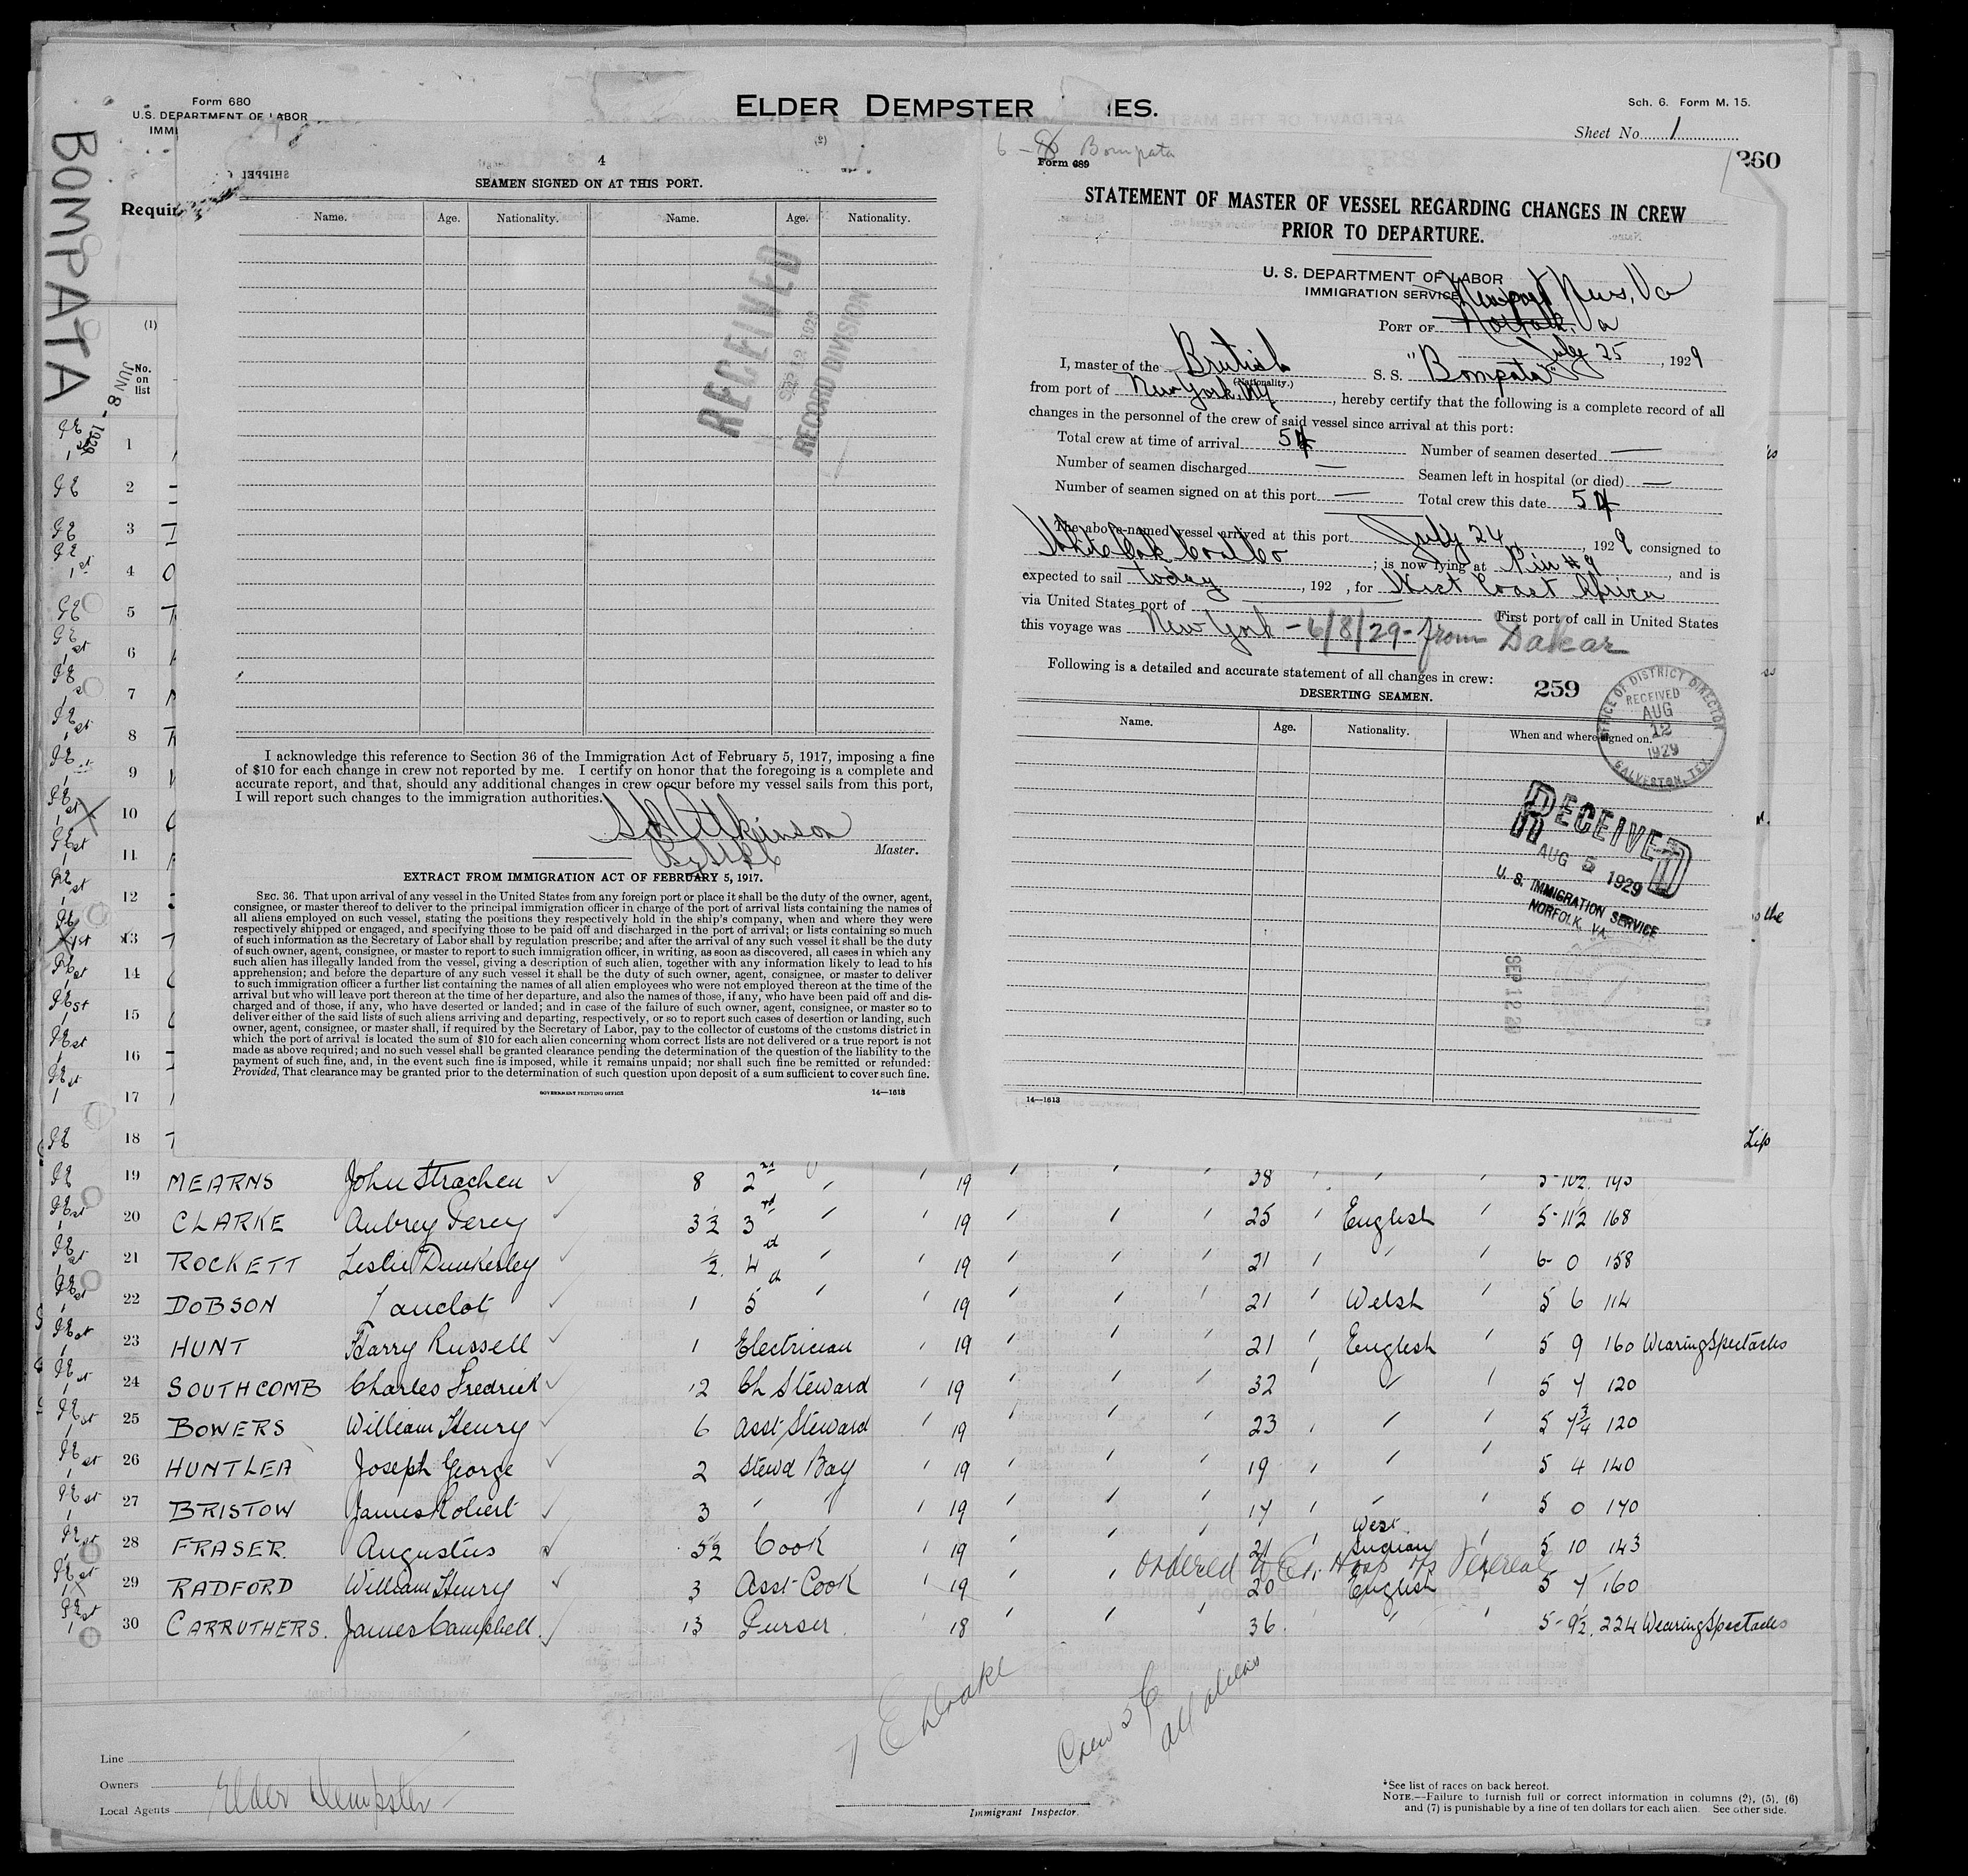 Form 680
U.S. DEPARTMENT OF LABOR
IMMI
ELDER DEMPSTER IES.
Sch. 6. Form M. 15.
Sheet No. 1
260
BOMPATA
JUN 8 - 1929
Requir
(1)
No. on list
1
2
3
4
5
6
7
8
9
10
11
12
13
14
15
16
17
18
(2)
4
SEAMEN SIGNED ON AT THIS PORT.
Name. Age. Nationality. Name. Age. Nationality.
RECEIVED
RECORD DIVISION
I acknowledge this reference to Section 36 of the Immigration Act of February 5, 1917, imposing a fine
of $10 for each change in crew not reported by me. I certify on honor that the foregoing is a complete and
accurate report, and that, should any additional changes in crew occur before my vessel sails from this port,
I will report such changes to the immigration authorities.
Atkinson
Master.
EXTRACT FROM IMMIGRATION ACT OF FEBRUARY 5, 1917.
SEC. 36. That upon arrival of any vessel in the United States from any foreign port or place it shall be the duty of the owner, agent,
consignee, or master thereof to deliver to the principal immigration officer in charge of the port of arrival lists containing the names of
all aliens employed on such vessel, stating the positions they respectively hold in the ship's company, when and where they were
respectively shipped or engaged, and specifying those to be paid off and discharged in the port of arrival; or lists containing so much
of such information as the Secretary of Labor shall by regulation prescribe; and after the arrival of any such vessel it shall be the duty
of such owner, agent, consignee, or master to report to such immigration officer, in writing, as soon as discovered, all cases in which any
such alien has illegally landed from the vessel, giving a description of such alien, together with any information likely to lead to his
apprehension; and before the departure of any such vessel it shall be the duty of such owner, agent, consignee, or master to deliver
to such immigration officer a further list containing the names of all alien employees who were not employed thereon at the time of the
arrival but who will leave port thereon at the time of her departure, and also the names of those, if any, who have been paid off and dis-
charged and of those, if any, who have deserted or landed; and in case of the failure of such owner, agent, consignee, or master so to
deliver either of the said lists of such aliens arriving and departing, respectively, or so to report such cases of desertion or landing, such
owner, agent, consignee, or master shall, if required by the Secretary of Labor, pay to the collector of customs of the customs district in
which the port of arrival is located the sum of $10 for each alien concerning whom correct lists are not delivered or a true report is not
made as above required; and no such vessel shall be granted clearance pending the determination of the question of the liability to the
payment of such fine, and, in the event such fine is imposed, while it remains unpaid; nor shall such fine be remitted or refunded:
Provided, That clearance may be granted prior to the determination of such question upon deposit of a sum sufficient to cover such fine.
GOVERNMENT PRINTING OFFICE
14—1613
6 - 8 Bompata
Form 689
STATEMENT OF MASTER OF VESSEL REGARDING CHANGES IN CREW
PRIOR TO DEPARTURE.
U. S. DEPARTMENT OF LABOR
IMMIGRATION SERVICE
Newport News, Va
PORT OF Norfolk, Va
July 25, 1929
I, master of the British S. S. "Bompata"
(Nationality.)
from port of New York, NY, hereby certify that the following is a complete record of all
changes in the personnel of the crew of said vessel since arrival at this port:
Total crew at time of arrival 54 Number of seamen deserted —
Number of seamen discharged — Seamen left in hospital (or died) —
Number of seamen signed on at this port — Total crew this date 54
The above-named vessel arrived at this port July 24, 1929 consigned to
White Oak Coal Co; is now lying at Pier #9, and is
expected to sail today, 192 , for West Coast Africa
via United States port of First port of call in United States
this voyage was New York - 6/8/29 - from Dakar
Following is a detailed and accurate statement of all changes in crew:
DESERTING SEAMEN.
259
Name. Age. Nationality. When and where signed on.
OFFICE OF DISTRICT DIRECTOR
RECEIVED
AUG
12
1929
GALVESTON, TEX.
RECEIVED
AUG 5 1929
U. S. IMMIGRATION SERVICE
NORFOLK, VA.
SEP 12 29
14—1613
the
Lip
19 MEARNS John Strachen 8 2nd 19 38
20 CLARKE Aubrey Percy 3½ 3rd 19 25 English 5-11½ 168
21 ROCKETT Leslie Dunkerley ½ 4th 19 21 6-0 158
22 DOBSON Lanclot 1 5th 19 21 Welsh 5 6 114
23 HUNT Harry Russell 1 Electrician 19 21 English 5 9 160 Wearing Spectacles
24 SOUTHCOMB Charles Fredrick 12 Ch Steward 19 32 5 7 120
25 BOWERS William Henry 6 Asst Steward 19 23 5 7¾ 120
26 HUNTLEA Joseph George 2 Stewd Boy 19 19 5 4 140
27 BRISTOW James Robert 3 " " 19 17 5 0 170
28 FRASER. Augustus 5½ Cook 19 21 West Indian 5 10 143
Ordered to Hosp Venereal
29 RADFORD William Henry 3 Asst Cook 19 20 English 5 7 160
30 CARRUTHERS. James Campbell 13 Purser 18 36 5-9½ 224 Wearing Spectacles
Crew 56
all aliens
Line
Owners
Local Agents Elder Dempster
Immigrant Inspector.
*See list of races on back hereof.
NOTE.—Failure to furnish full or correct information in columns (2), (5), (6)
and (7) is punishable by a fine of ten dollars for each alien. See other side.